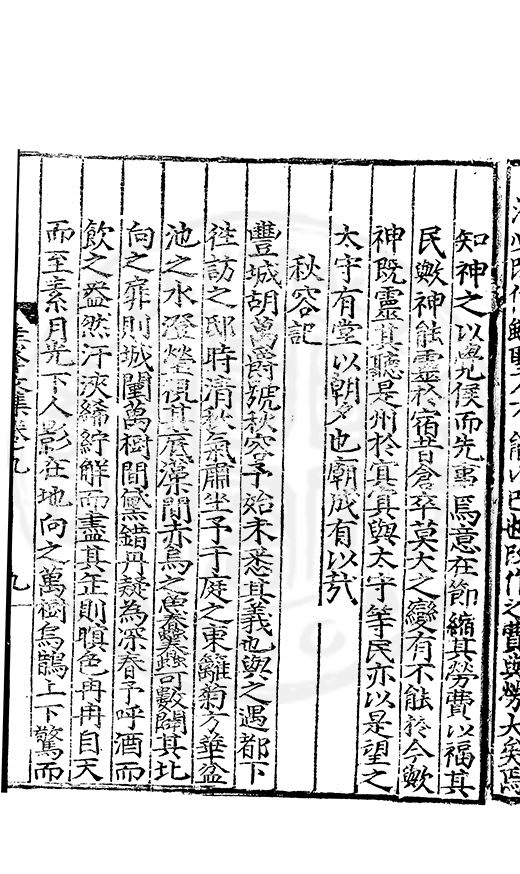 知神之以奐侯而先事焉意在節縮其勞費以福其
民歟神能靈於宿昔倉卒莫大之變有不能於今歟
神既靈其聽是州於冥冥與太守等民亦以是望之
太守有堂以朝夕也廟成有以哉
秋容記
豐城胡萬爵號秋容予始未悉其義也與之遇都下
往訪之邸時清秋氣肅坐予于庭之東籬菊方華盆
池之水澄瑩視其底藻間亦烏之魚蠢蠢可數闢其北
向之扉則城闉萬樹間黛錯丹疑為深春予呼酒而
飲之盎然汗浹絺紵解而盡其缶則暝色冉冉自天
而至素月光下人影在地向之萬樹烏鵲上下驚而
文集卷之九
九